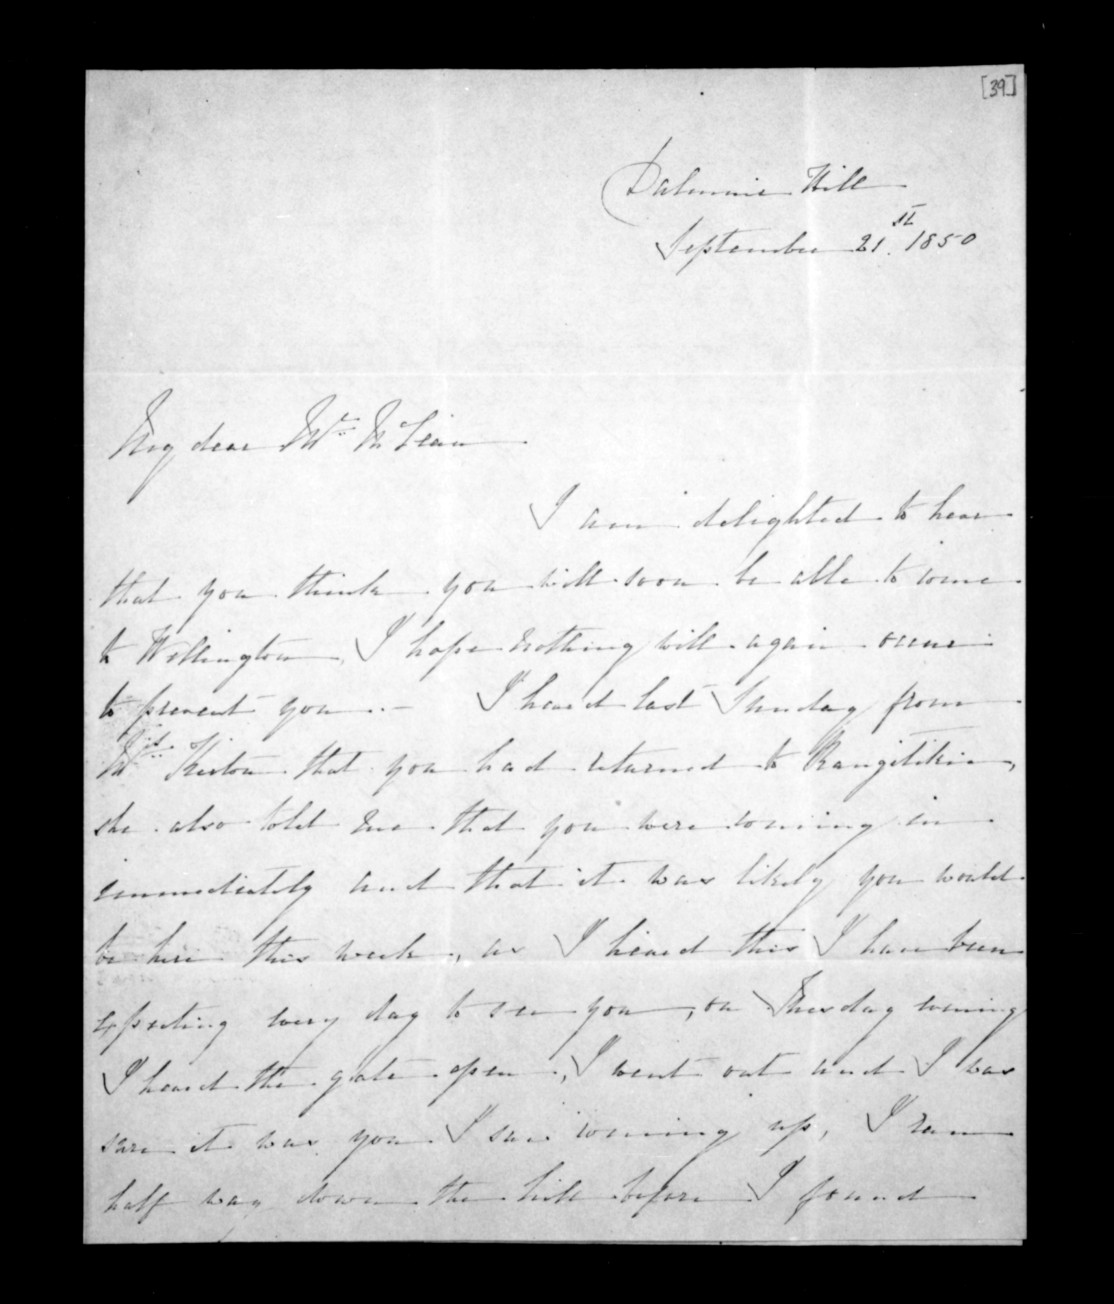 [39]
Dalmuir Hill
September 21st. 1850
My dear Mr. McLean
I am delighted to hear
that you think you will soon be able to come
to Wellington, I hope nothing will again occur
to prevent you. - I heard last Sunday from
that you had returned to Rangitikie,
she also told me that you were coming in
immediately and that it was likely you would
be here this week, as I heard this I have been
expecting every day to see you, on Thursday evening
I heard the gate open, I went out and I was
sure it was you I saw coming up, I ran
half way down the hill before I found